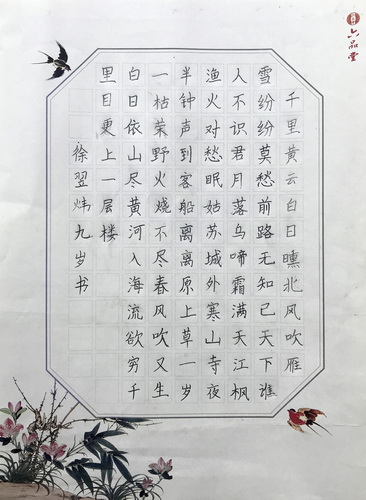 六品堂
千里黄云白日曛北风吹雁
雪纷纷莫愁前路无知已天下谁
人不识君月落乌啼霜满天江枫
渔火对愁眠姑苏城外寒山寺夜
半钟声到客船离离原上草一岁
一枯荣野火烧不尽春风吹又生
白日依山尽黄河入海流欲穷千
里目更上一层楼
徐翌炜九岁书